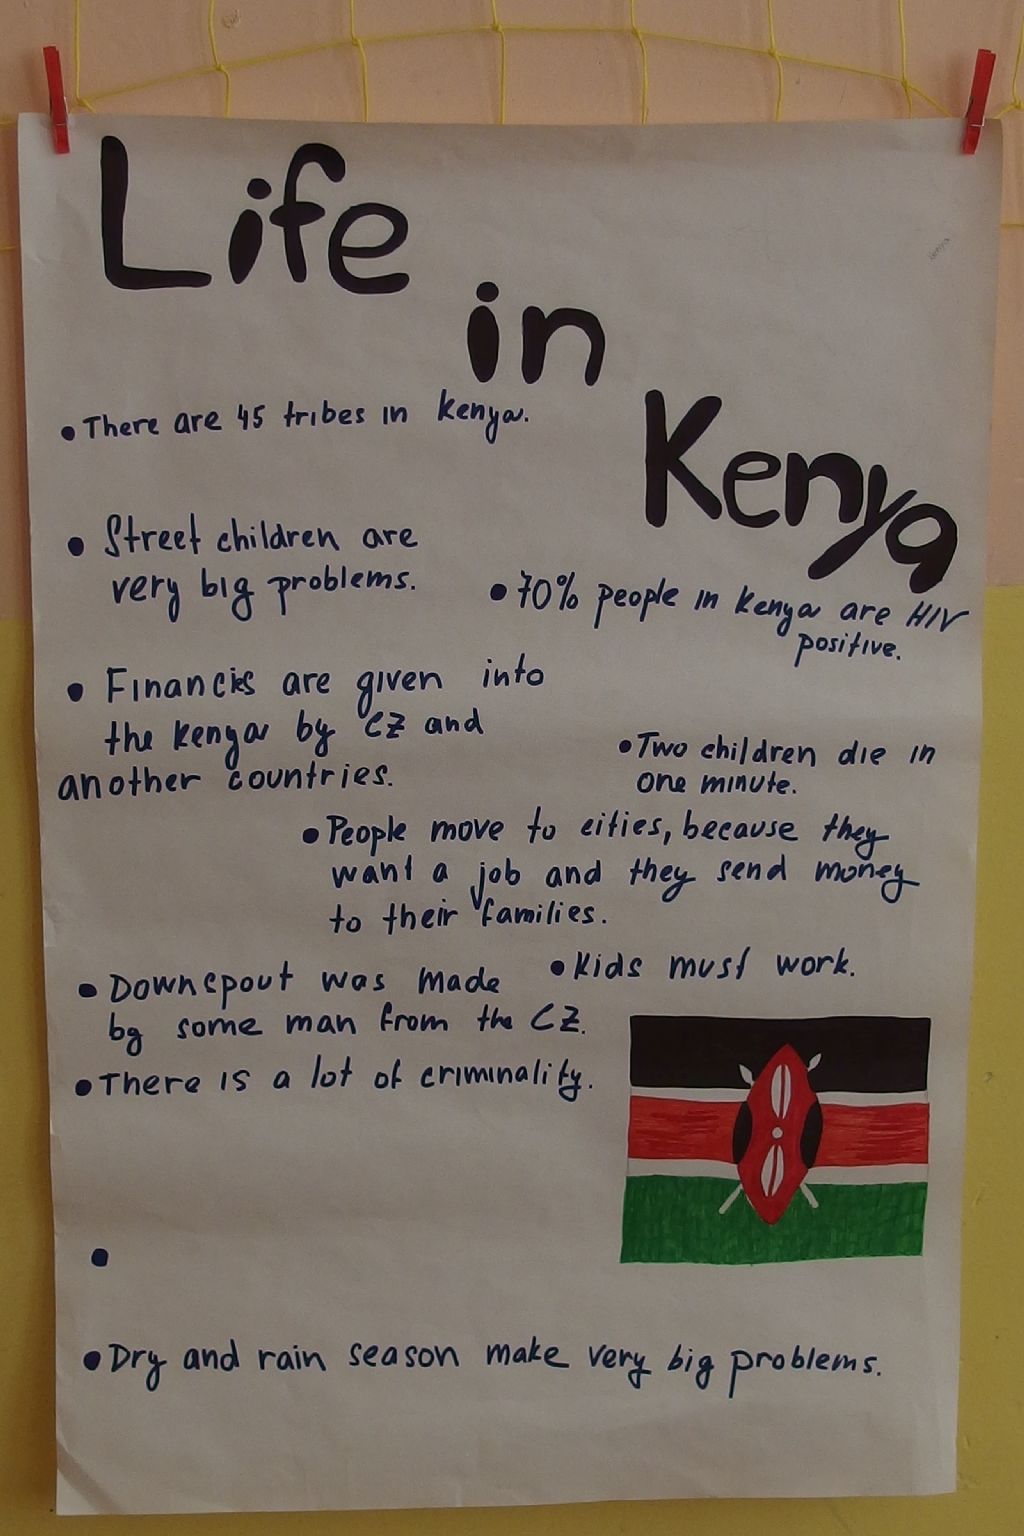 Life
in
Kenya
• There are 45 tribes in Kenya.
• Street children are
very big problems.
• 70% people in Kenya are HIV
positive.
• Financies are given into
the Kenya by CZ and
another countries.
• Two children die in
one minute.
• People move to cities, because they
want a job and they send money
to their families.
• Kids must work.
• Downepout was made
by some man from the CZ.
• There is a lot of criminality.
•
• Dry and rain season make very big problems.